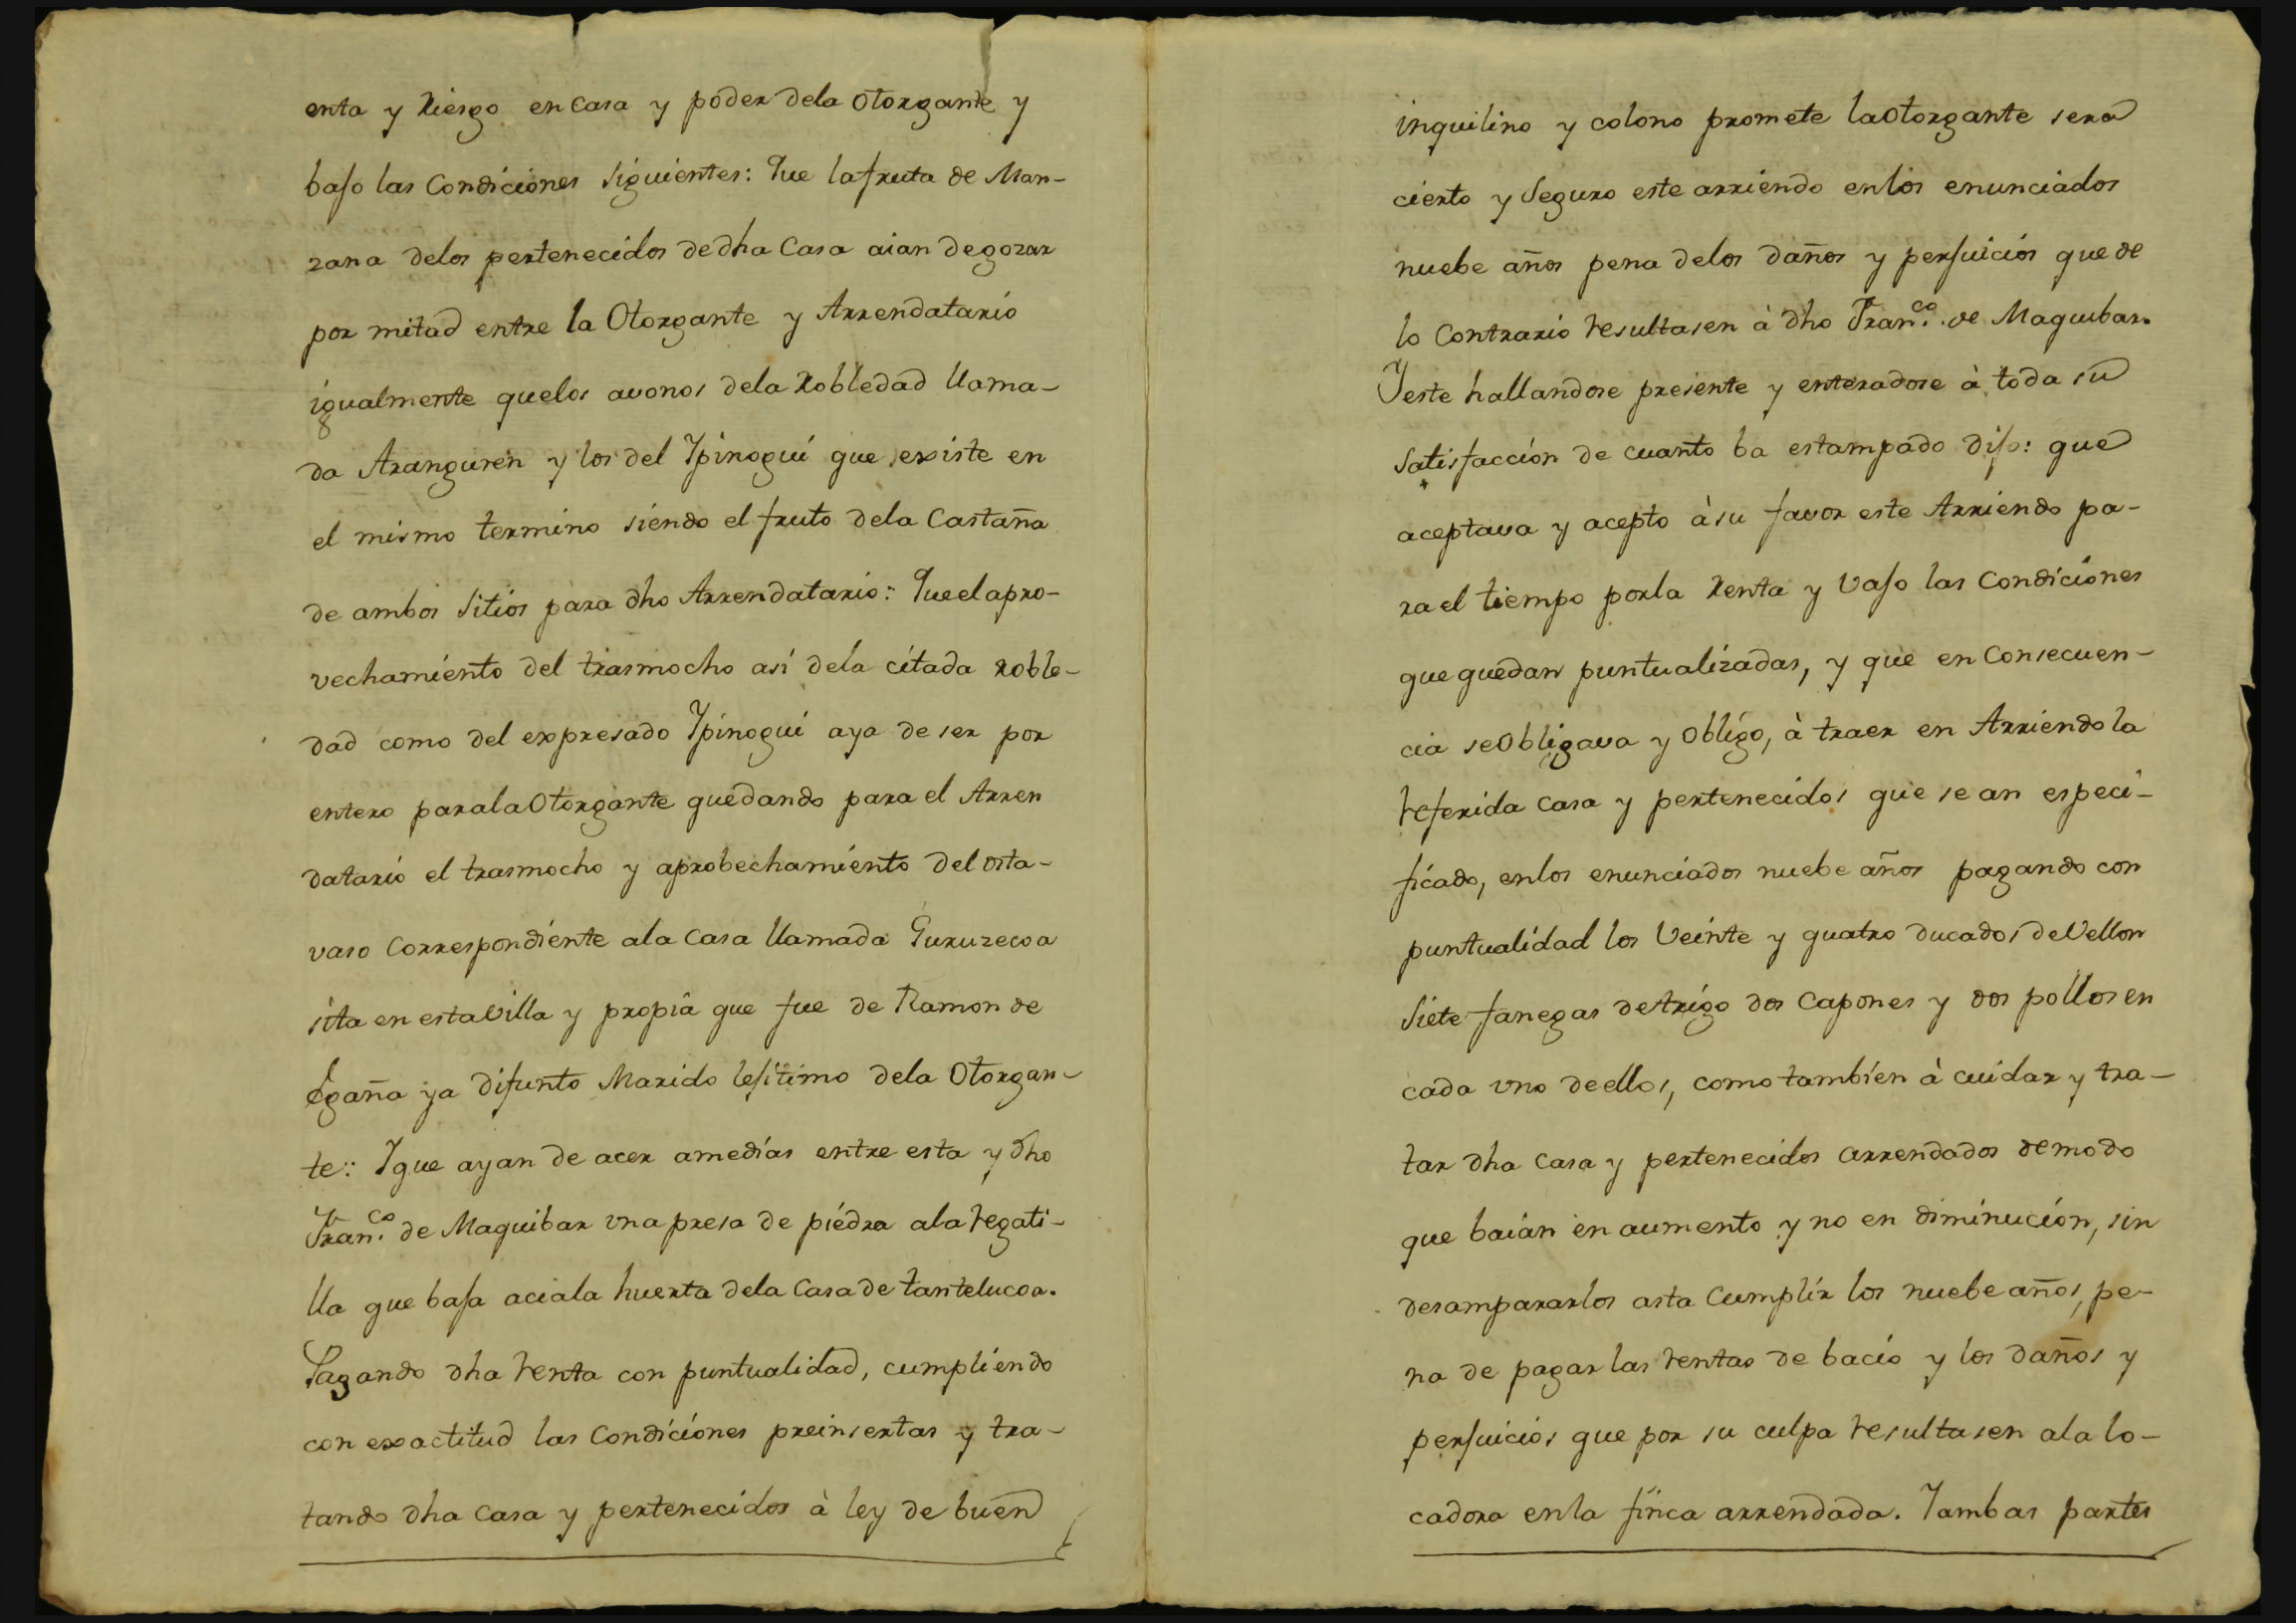 enta y Riesgo en casa y poder dela otorgante y
bajo las Condiciones siguientes: Que la fruta de Man-
zana delos pertenecidos de dha Casa aian de gozar
por mitad entre la Otorgante y Arrendatario
igualmente quelos avonos dela Robledad llama-
da Aranguren y los del Ypinogui que existe en
el mismo termino siendo el fruto dela Castaña
de ambos Sitios para dho Arrendatario: Que el apro-
vechamiento del trasmocho asi dela citada roble-
dad como del expresado Ypinogui aya de ser por
entero para la Otorgante quedando para el Arren
datario el trasmocho y aprobechamiento del osta-
vaso Correspondiente ala Casa llamada Guruzecoa
sita en esta Villa y propia que fue de Ramon de
Egaña ya difunto Marido lejitimo dela Otorgan-
te: Y que ayan de acer amedias entre esta y dho
Fran.co de Maquibar vna presa de piedra ala regati-
lla que baja acia la huerta dela Casa de tantelucoa.
Pagando dha renta con puntualidad, cumpliendo
con exactitud las Condiciones preinsertas y tra-
tando dha Casa y pertenecidos à ley de buen
inquilino y colono promete la Otorgante sera
cierto y Seguro este arriendo enlos enunciados
nuebe años pena delos daños y perjuicios que de
lo Contrario resultasen à dho Fran.co de Maquibar.
Y este hallandose presente y enteradose à toda su
Satisfacción de cuanto ba estampado dijo: que
aceptava y acepto à su favor este Arriendo pa-
ra el tiempo por la Renta y Vajo las Condiciones
que quedan puntualizadas, y que en Consecuen-
cia se Obligava y Obligo, à traer en Arriendo la
referida casa y pertenecidos que se an especi-
ficado, enlos enunciados nuebe años pagando con
puntualidad los Veinte y quatro ducados de Vellon
Siete fanegas de trigo dos Capones y dos pollos en
cada vno de ellos, como tambien à cuidar y tra-
tar dha Casa y pertenecidos arrendados de modo
que baian en aumento y no en diminución, sin
desampararlos asta Cumplir los nuebe años, pe-
na de pagar las rentas de bacio y los daños y
perjuicios que por su culpa resultasen ala lo-
cadora enla finca arrendada. Y ambas partes